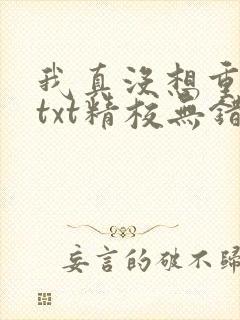 我真没想重
txt精校無錯
妄言的破不歸